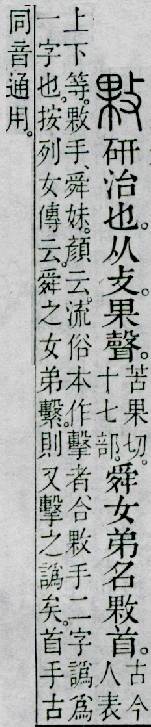 敤研治也。从攴果聲。苦果切。十七部。舜女弟名敤首。古今人表
上下等。敤手舜妹。顏云。流俗本作擊者。合敤手二字譌爲
一字也。按列女傳云。舜之女弟繫。則又擊之譌矣。首手古
同音通用。